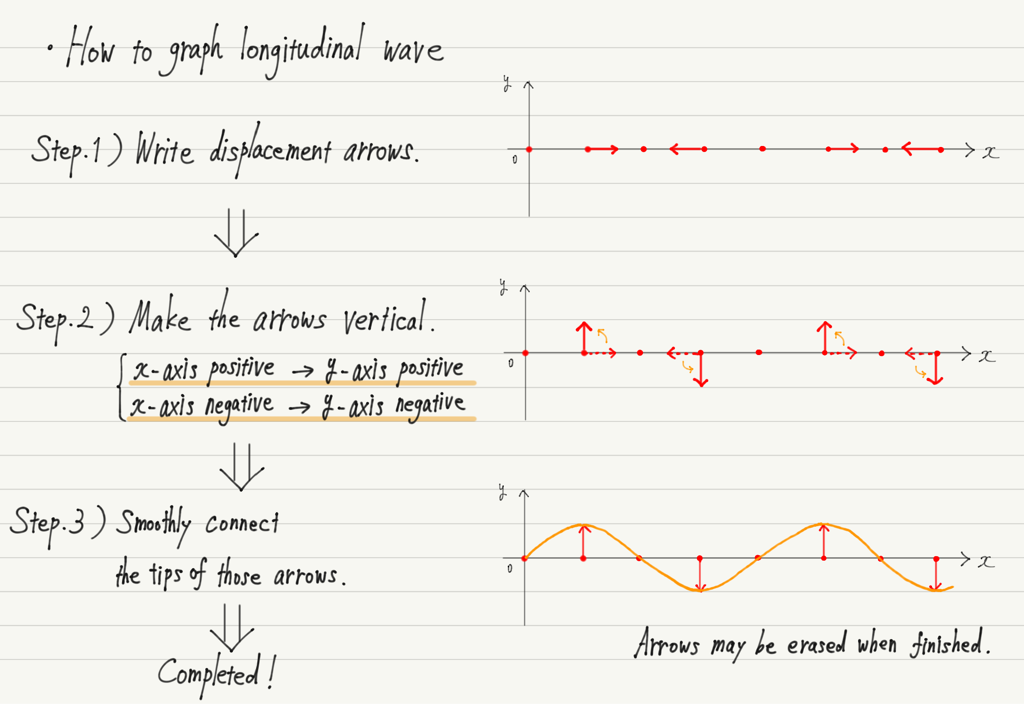 • How to graph longitudinal wave
y
Step.1) Write displacement arrows.
0
x
Step.2) Make the arrows vertical.
y
0
x
x-axis positive → y-axis positive
x-axis negative → y-axis negative
y
Step.3) Smoothly connect
the tips of those arrows.
0
x
Arrows may be erased when finished.
Completed!